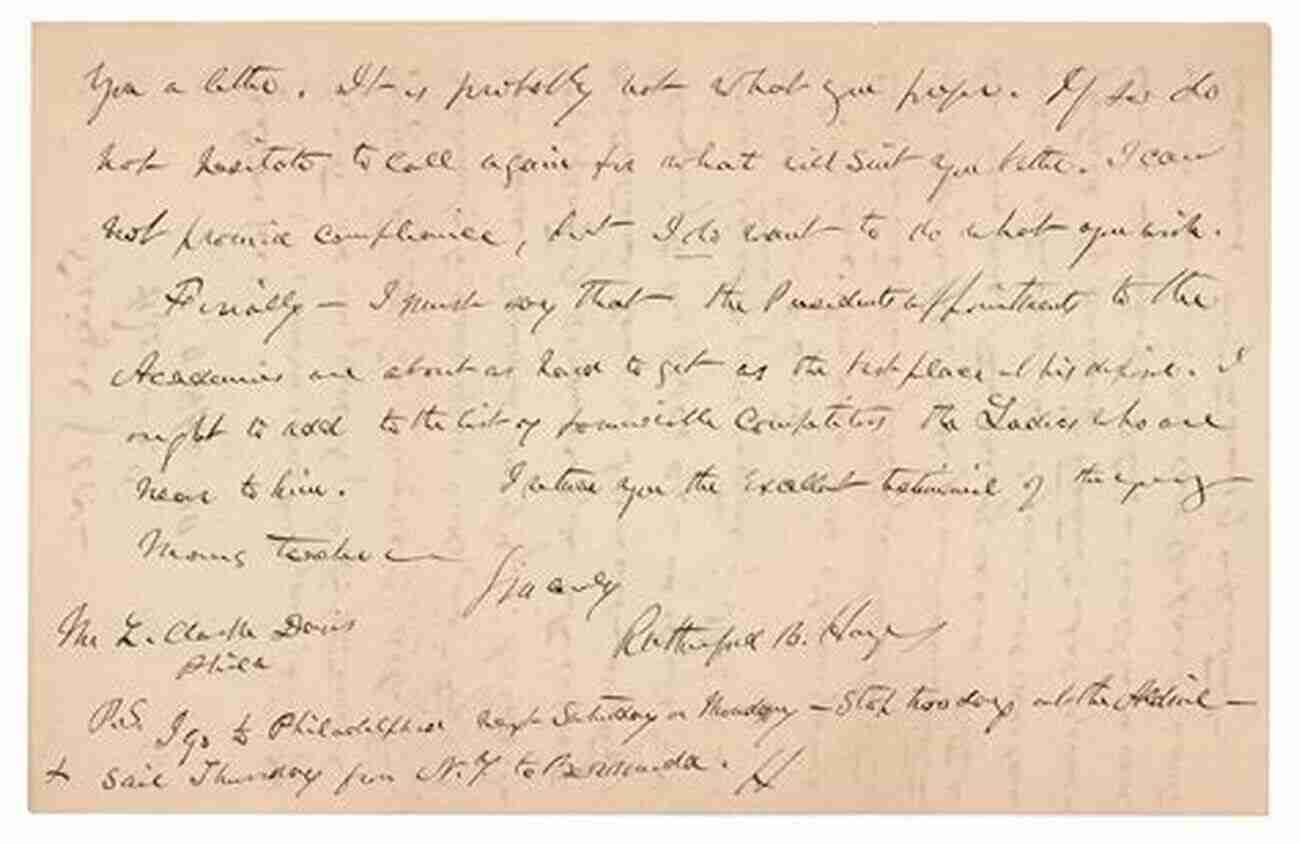 you a letter. It is probably not what you prefer. If so do
not hesitate to call again for what will suit you better. I can
not promise compliance, but I do want to do what you wish.
Finally — I must say that the Presidents appointments to the
Academies are about as hard to get as the best place at his disposal. I
ought to add to the list of formidable competitors the Ladies who are
near to him. I return you the excellent testimonial of the young
teacher —
Sincerely
Rutherford B. Hayes
Mr L. Clarke Davis
Phila
P.S. I go to Philadelphia next Saturday or Monday — Stop two days at the Aldine —
+ sail Thursday from N.Y to Bermuda. H